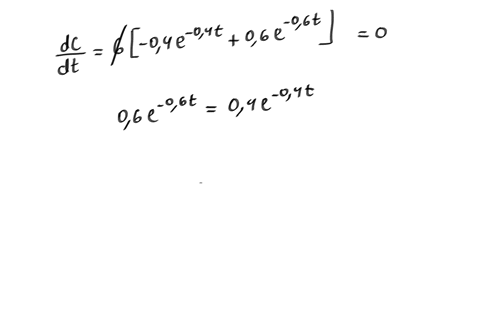 dC/dt = 6[-0,4e^-0,4t + 0,6e^-0,6t] = 0
0,6e^-0,6t = 0,4e^-0,4t